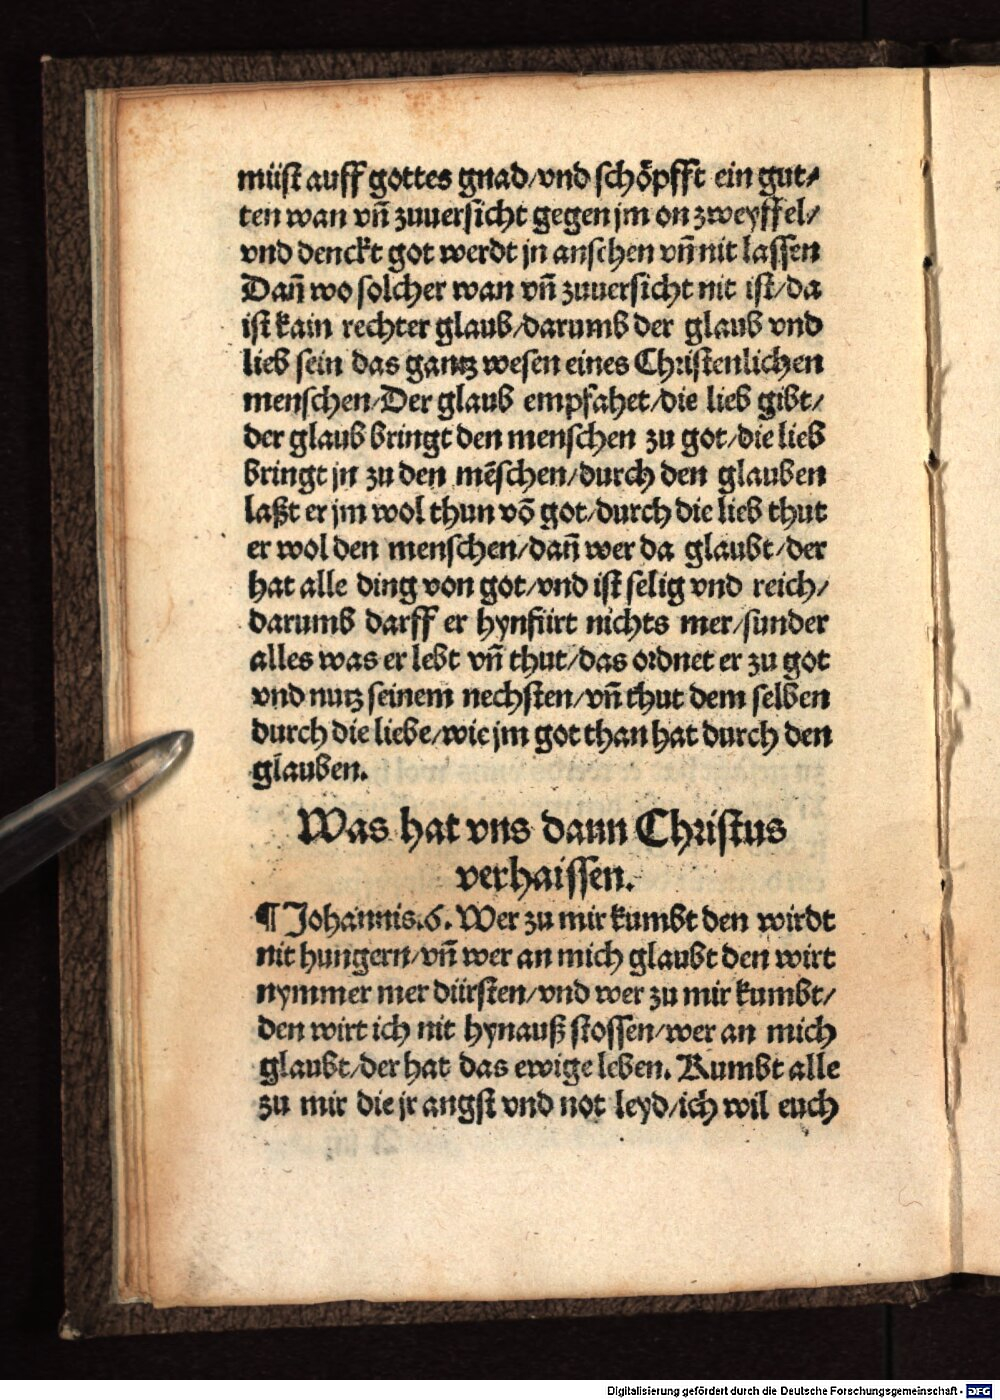 müst auff gottes gnad/vnd schöpfft ein gut⸗
ten wan vñ zuuersicht gegen jm on zweyffel/
vnd denckt got werdt jn ansehen vñ nit lassen
Dañ wo solcher wan vñ zuuersicht nit ist/da
ist kain rechter glaub/darumb der glaub vnd
lieb sein das gantz wesen eines Christenlichen
menschen/Der glaub empfahet/die lieb gibt/
der glaub bringt den menschen zu got/die lieb
bringt jn zu den mēschen/durch den glauben
laßt er jm wol thun võ got/durch die lieb thut
er wol den menschen/dañ wer da glaubt/der
hat alle ding von got/vnd ist selig vnd reich/
darumb darff er hynfürt nichts mer/sunder
alles was er lebt vñ thut/das ordnet er zu got
vnd nutz seinem nechsten/vñ thut dem selben
durch die liebe/wie jm got than hat durch den
glauben.
Was hat vns dann Christus
verhaissen.
¶ Johannis.6. Wer zu mir kumbt den wirdt
nit hungern/vñ wer an mich glaubt den wirt
nymmer mer dürsten/vnd wer zu mir kumbt/
den wirt ich nit hynauß stossen/wer an mich
glaubt/der hat das ewige leben. Kumbt alle
zu mir die jr angst vnd not leyd/ich wil euch
Digitalisierung gefördert durch die Deutsche Forschungsgemeinschaft - DFG